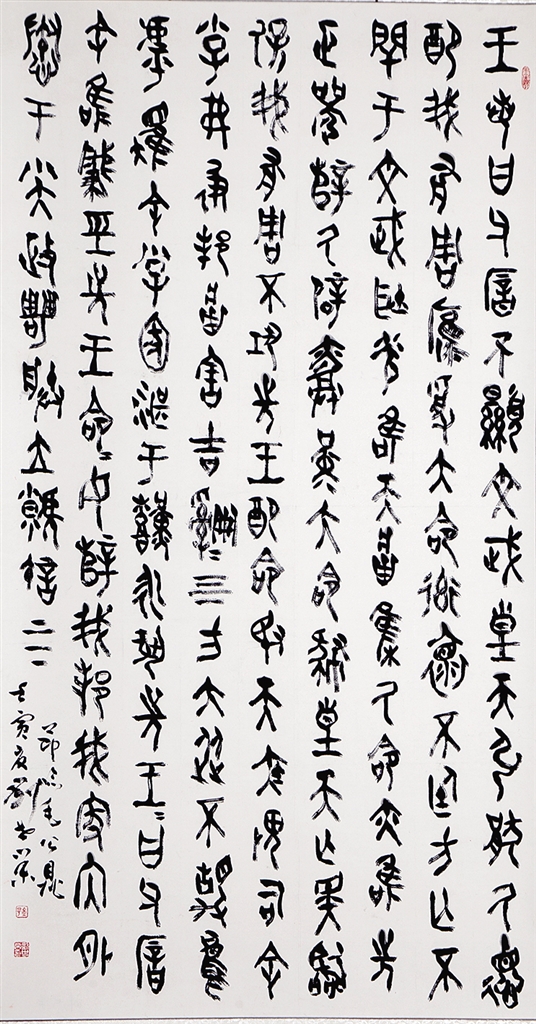 王若曰父厝不顯文武皇天弘猒厥德
配我有周膺受大命率懷不廷方亡不
閈于文武耿光唯天將集厥命亦唯先
正襄辥厥辟勞堇大命肆皇天亡斁臨
保我有周不巩先王配命敃天疾畏司余
小子弗彶邦將害吉亖方大縱不靜烏
虖趯余小子圂湛于艱永巩先王=曰父厝
今余唯肇巠先王命=女辥我邦我家內外
惷于小大政屏朕立虩許上下
節臨毛公鼎
壬寅夏劉